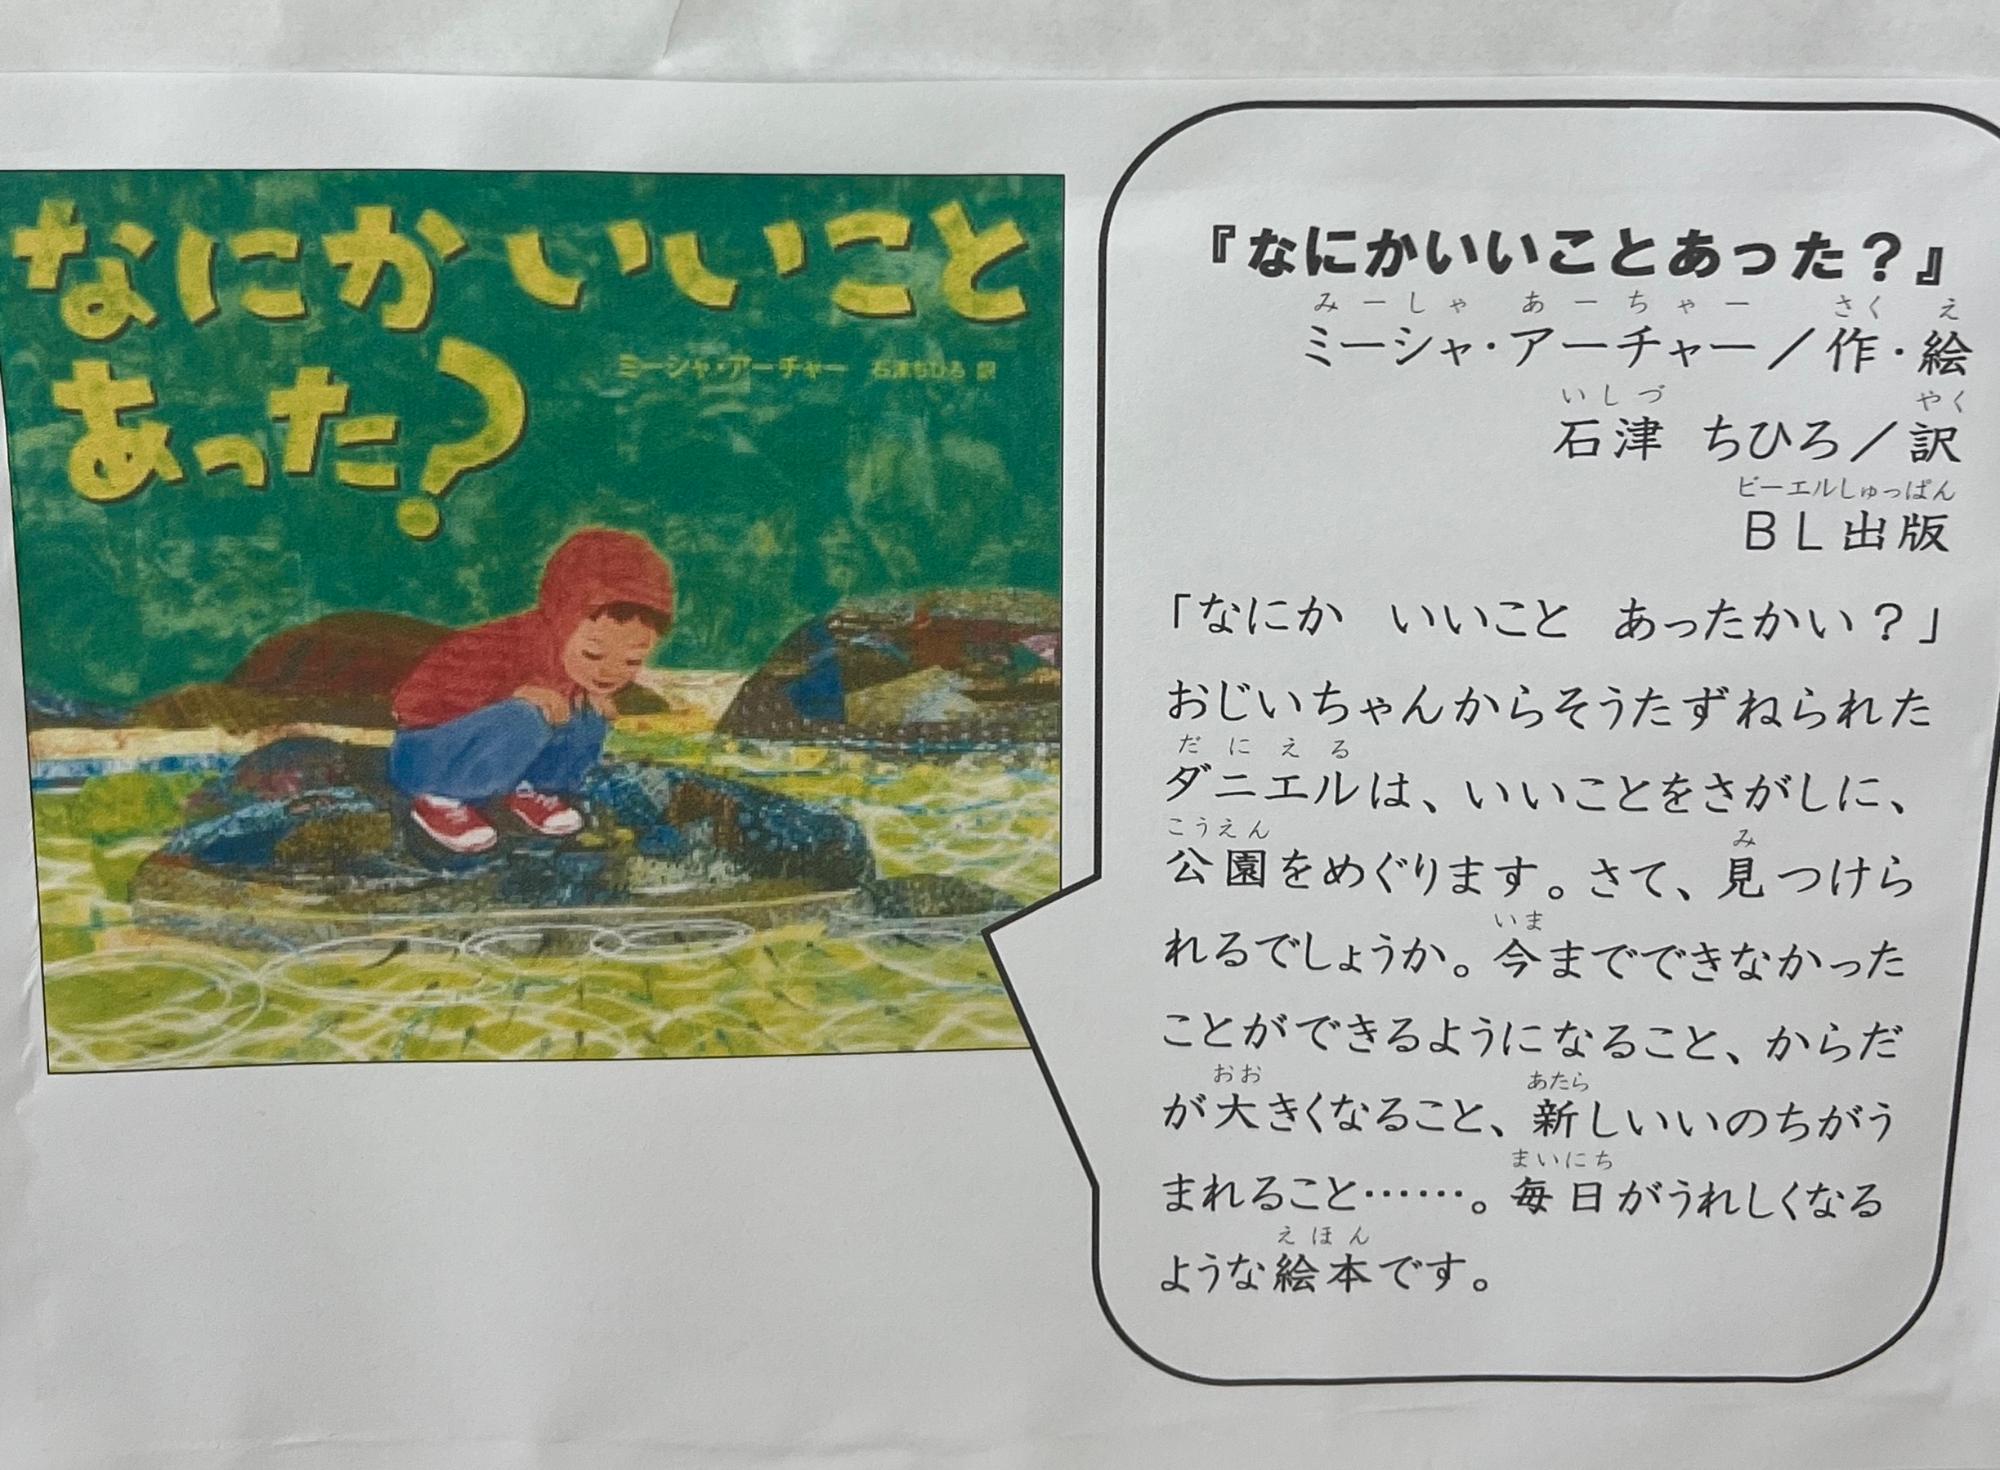 なにかいいこと
あった?
ミーシャ・アーチャー 石津ちひろ 訳
『なにかいいことあった?』
みーしゃ あーちゃー さく え
ミーシャ・アーチャー/作・絵
いしづ やく
石津 ちひろ/訳
ビーエルしゅっぱん
BL出版
「なにか いいこと あったかい?」
おじいちゃんからそうたずねられた
だにえる
ダニエルは、いいことをさがしに、
こうえん み
公園をめぐります。さて、見つけら
いま
れるでしょうか。今までできなかった
ことができるようになること、からだ
おお あたら
が大きくなること、新しいいのちがう
まいにち
まれること……。毎日がうれしくなる
えほん
ような絵本です。